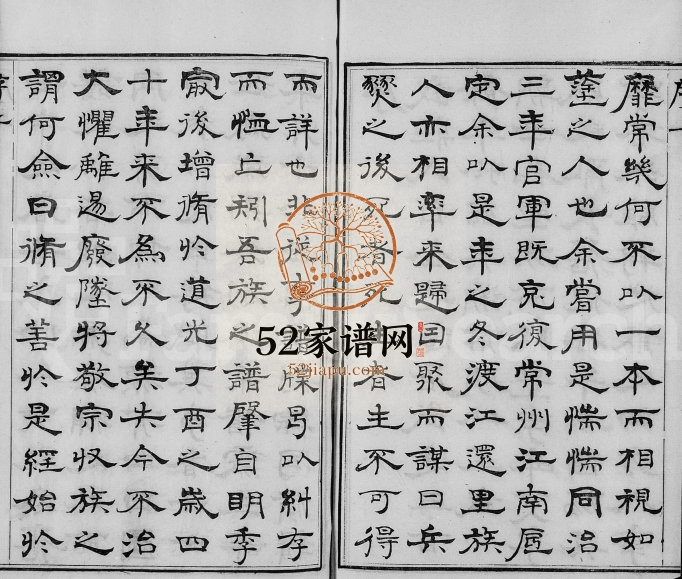 靡常幾何不以一本而相視如
塗之人也余嘗用是惴惴同治
三年官軍既克復常州江南底
定余以是年之冬渡江還里族
人亦相率來歸因聚而謀曰兵
燹之後死者死者生不可得
而詳也非牒曷以糾存
而恤亡矧吾族之譜肇自明季
最後增脩於道光丁酉之歲四
十年來不為不久矣失今不治
大懼離逷廢墜將敬宗收族之
謂何僉曰脩之善於是經始於
52家谱网
52jiapu.com